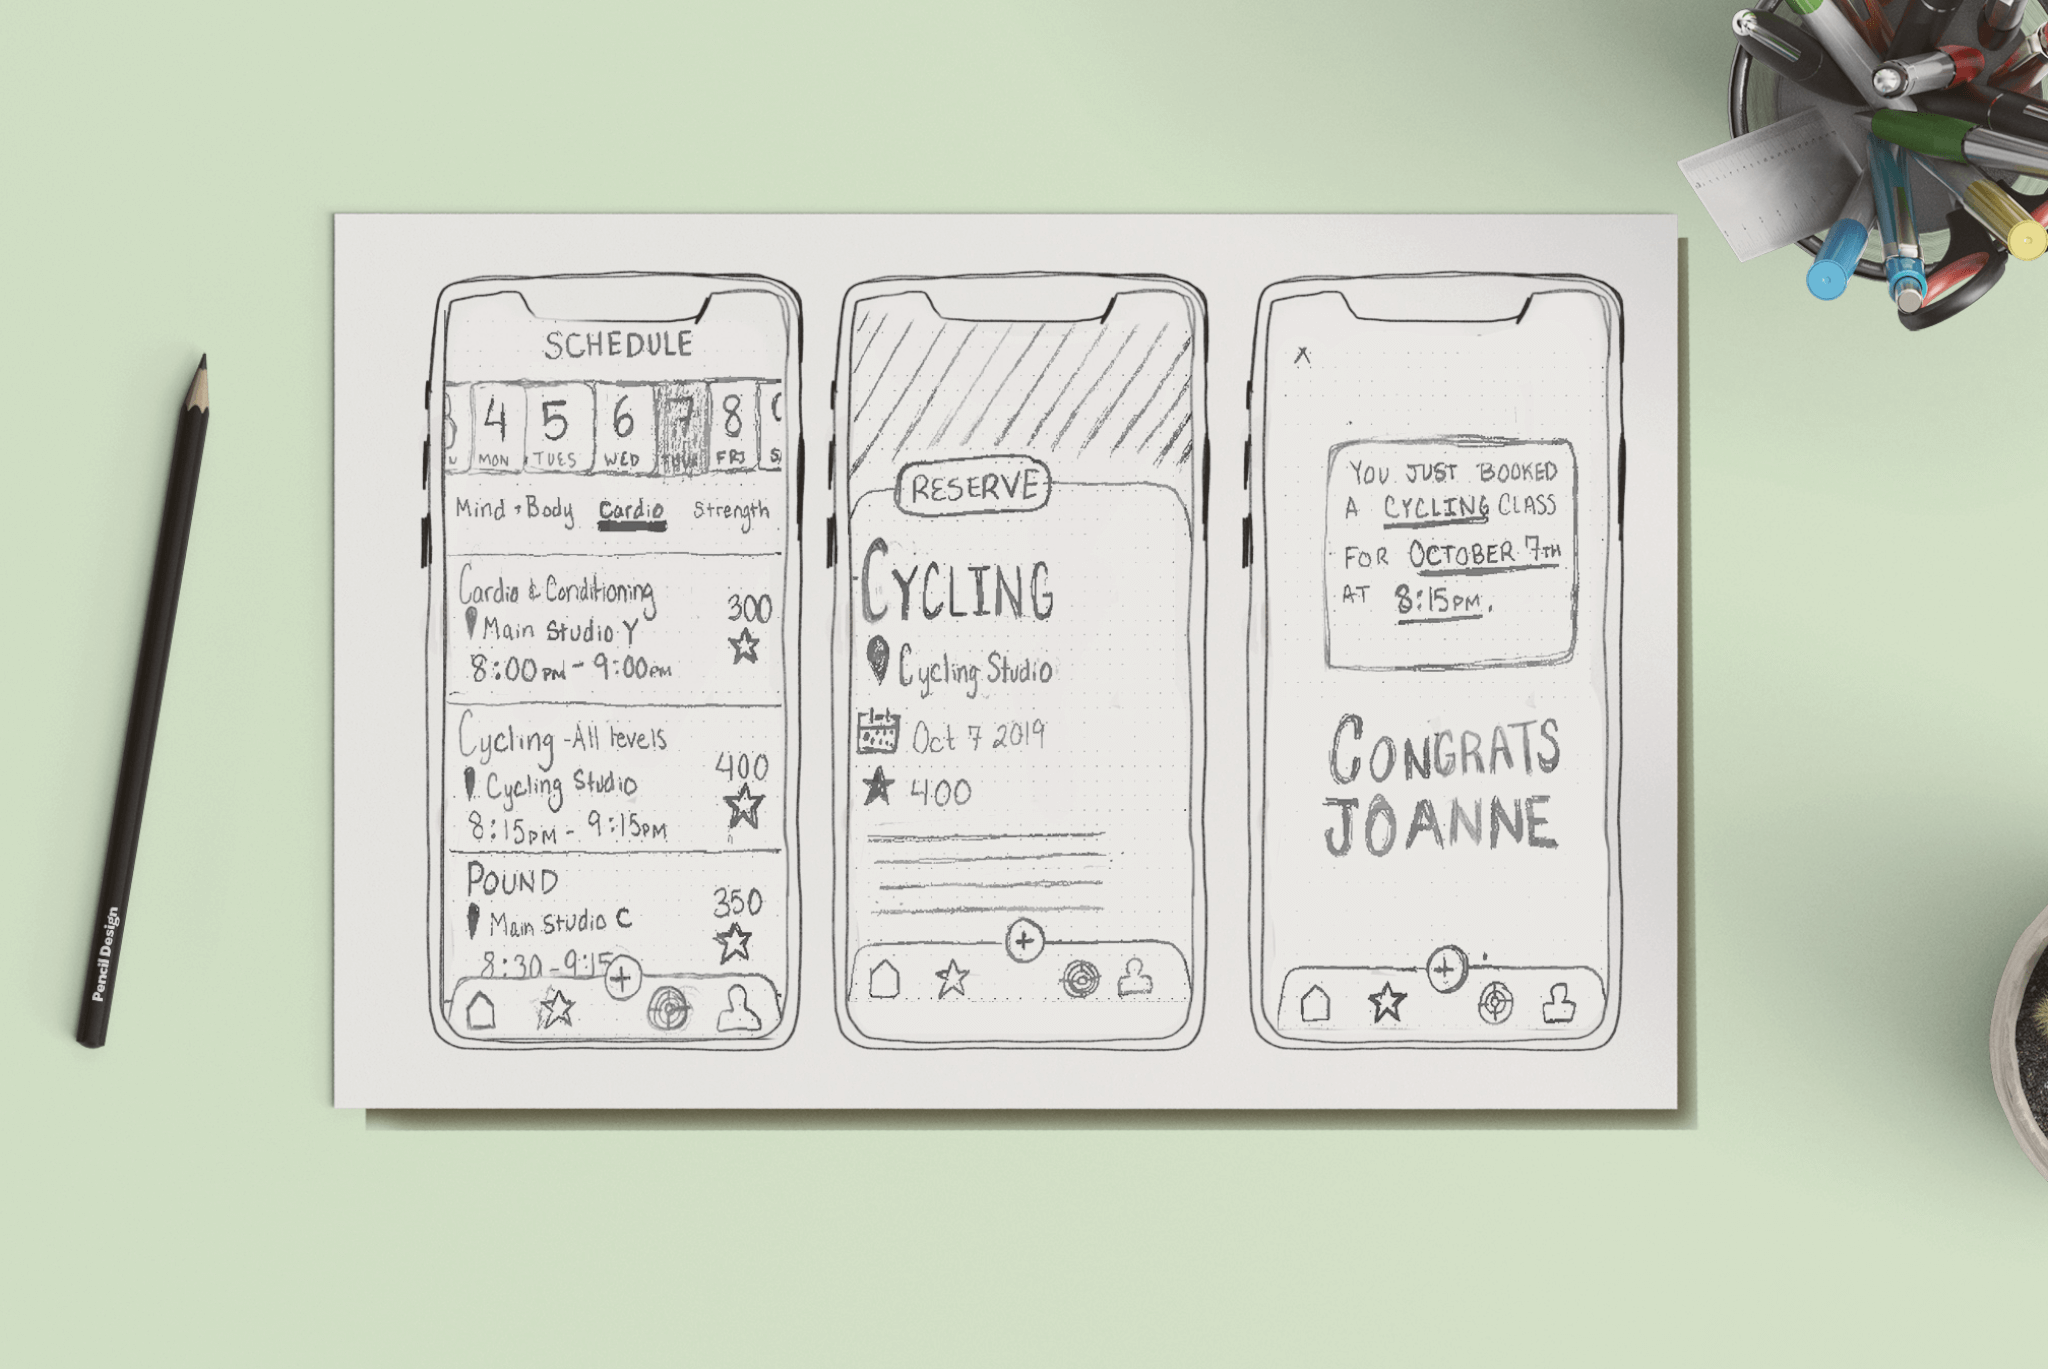 SCHEDULE
4 5 6 7 8
MON TUES WED THUR FRI
Mind + Body Cardio Strength
Cardio & Conditioning
300
Main Studio Y
8:00PM - 9:00PM
Cycling - All levels
400
Cycling Studio
8:15PM - 9:15PM
POUND
350
Main Studio C
8:30 - 9:15
RESERVE
CYCLING
Cycling Studio
Oct 7 2019
400
X
YOU JUST BOOKED
A CYCLING CLASS
FOR OCTOBER 7TH
AT 8:15PM.
CONGRATS
JOANNE
Pencil Design